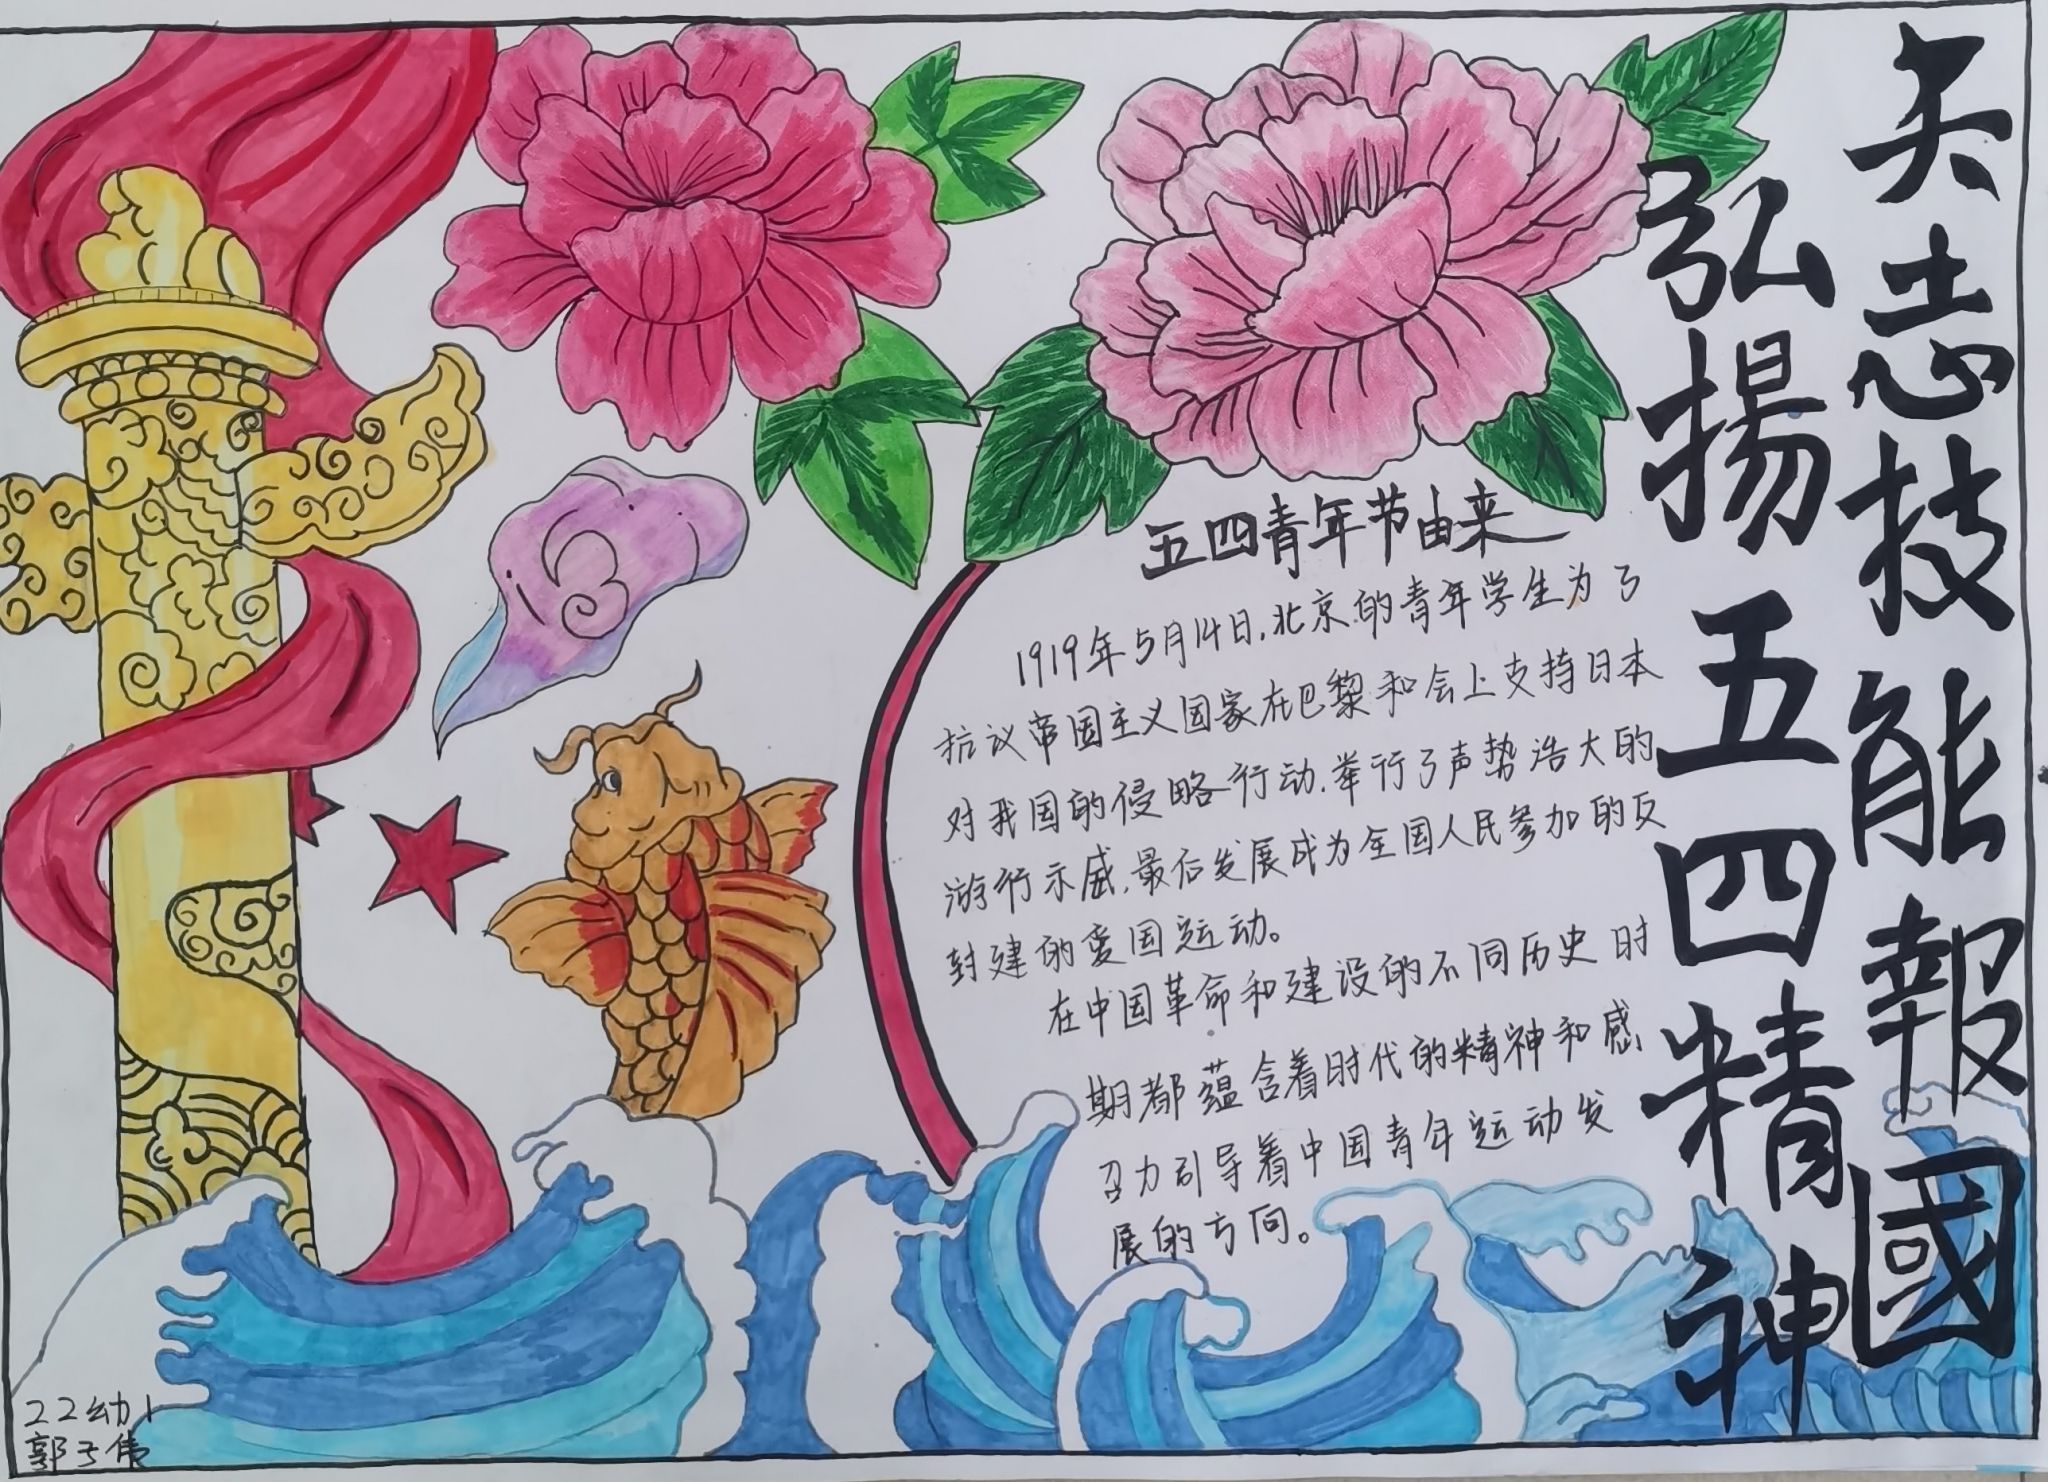 矢志技能報國
弘揚五四精神
五四青年节由来
1919年5月14日,北京的青年学生为了
抗议帝国主义国家在巴黎和会上支持日本
对我国的侵略行动,举行了声势浩大的
游行示威,最后发展成为全国人民参加的反
封建的爱国运动。
在中国革命和建设的不同历史时
期都蕴含着时代的精神和感
召力引导着中国青年运动发
展的方向。
22幼1
郭子伟